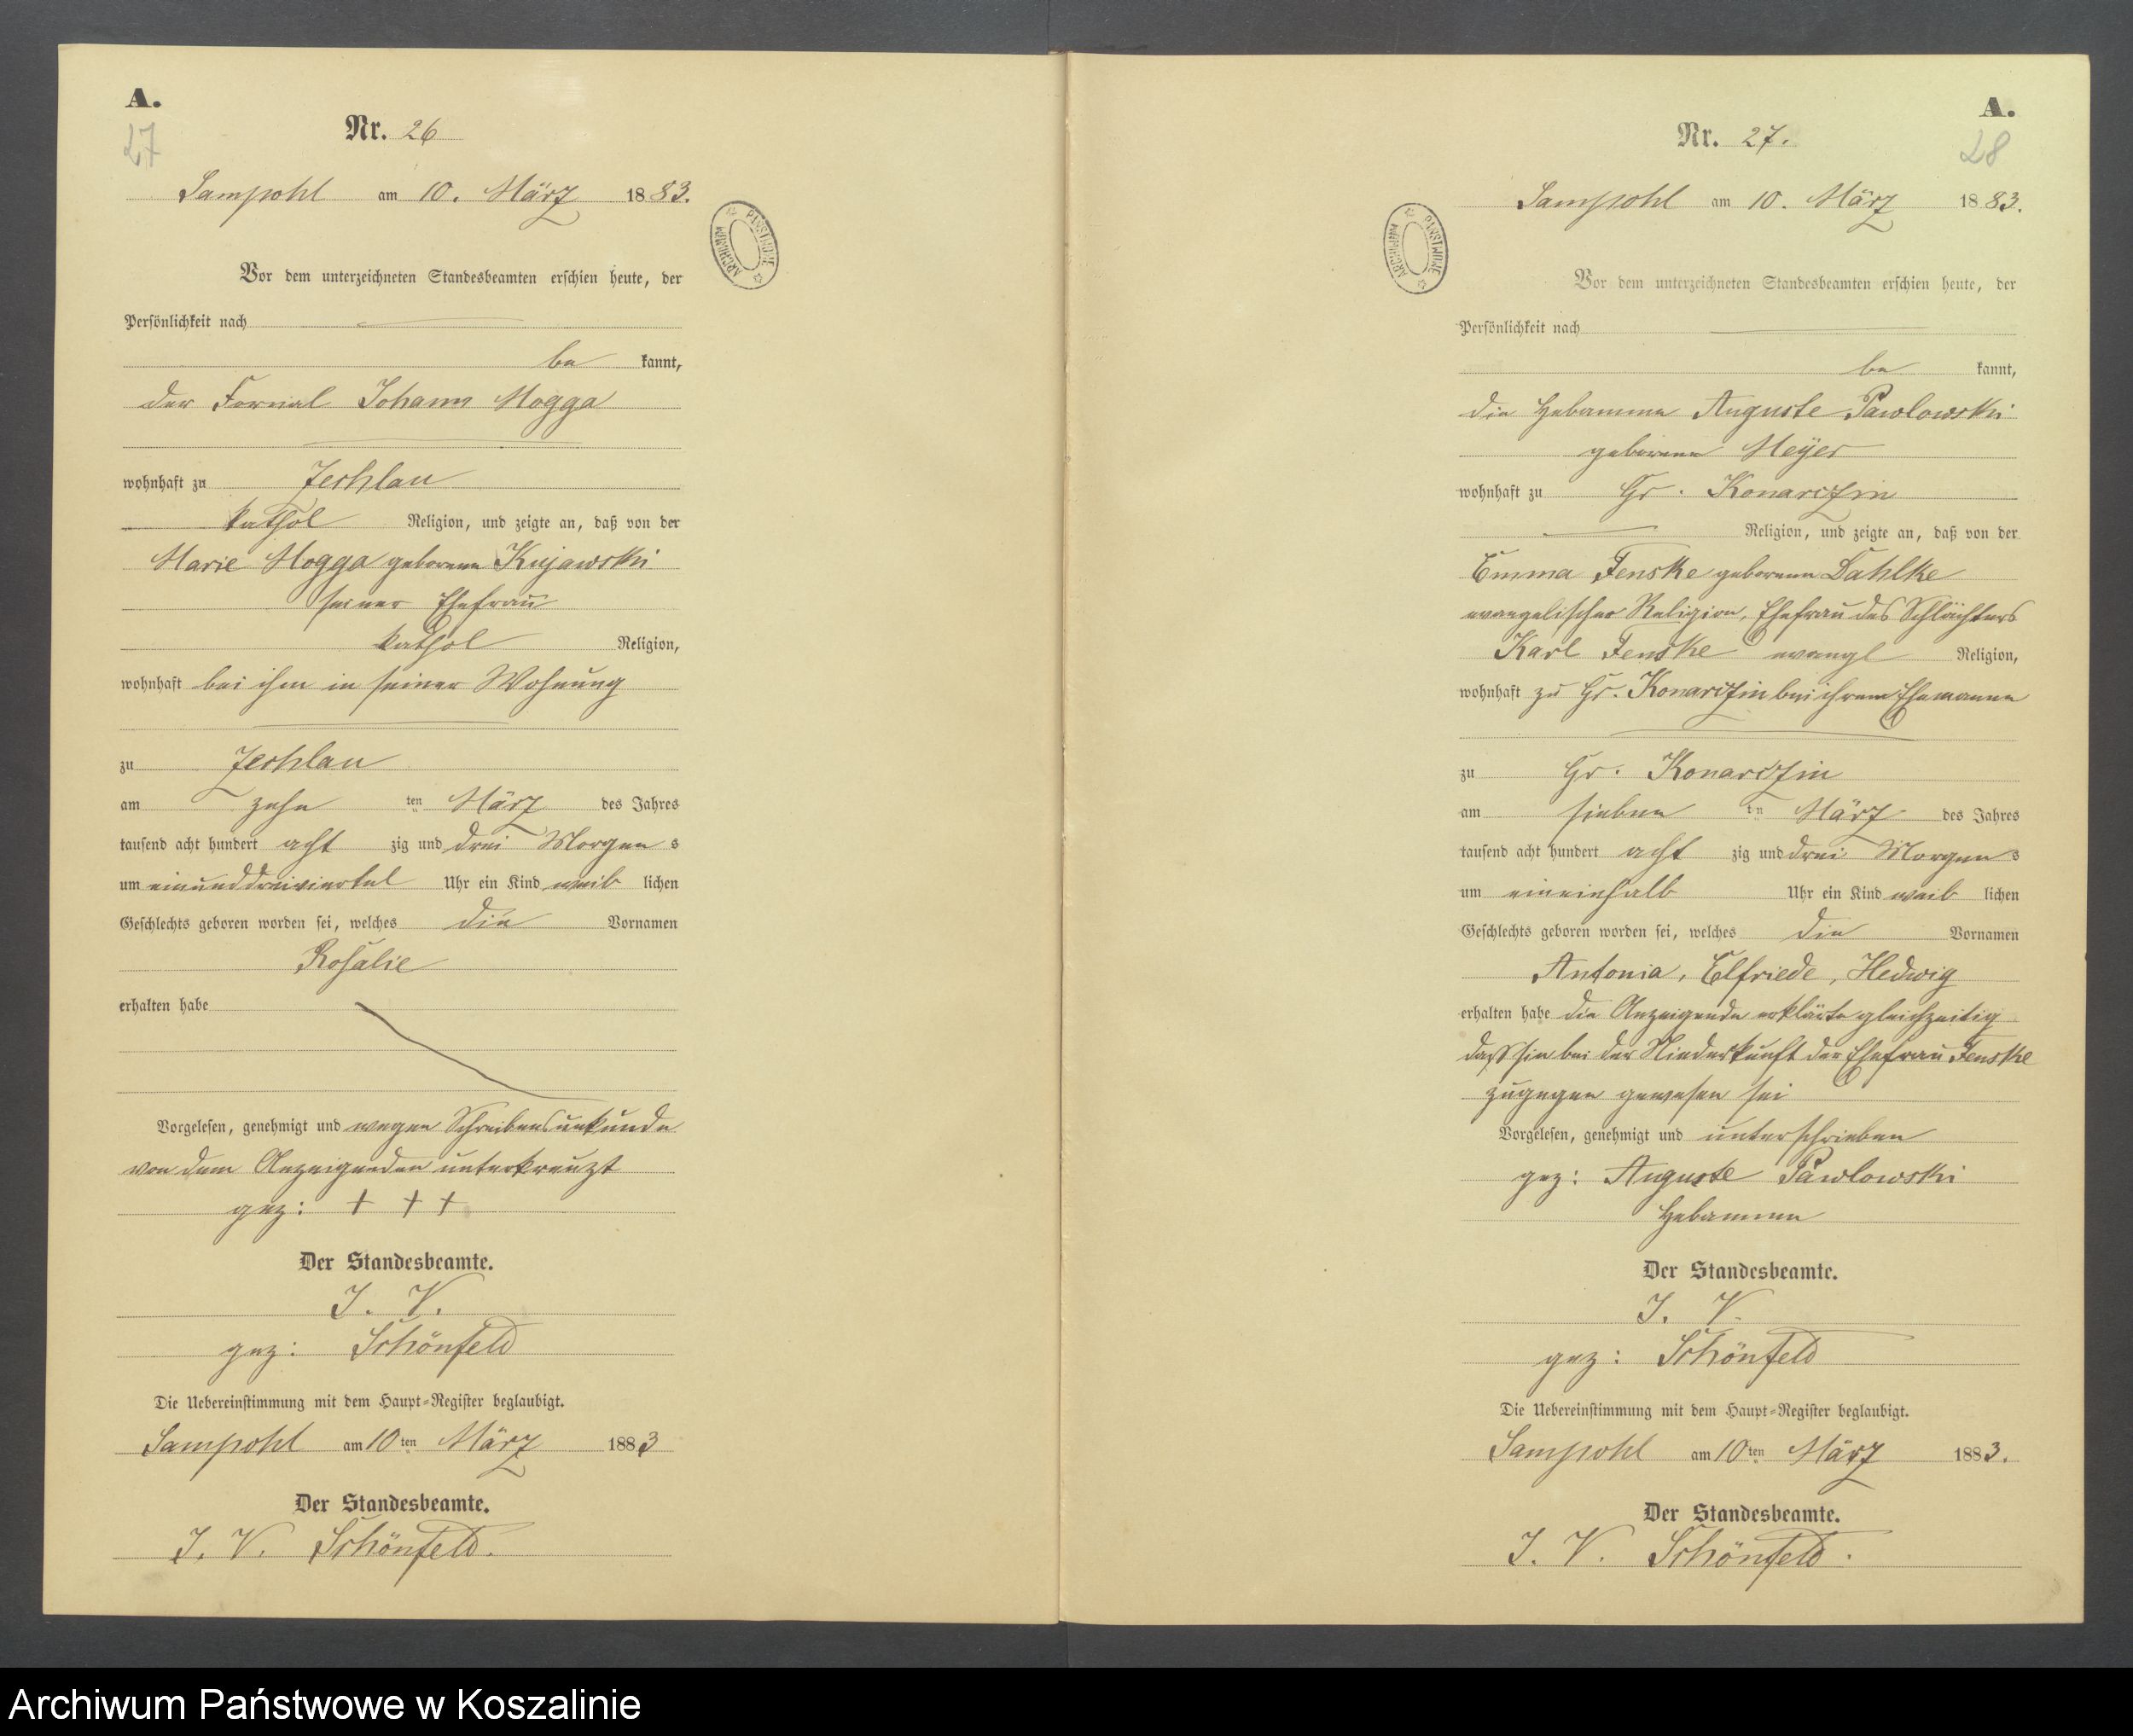 A.
27
Nr. 26
Sampohl am 10. März 1883.
ARCHIWUM PAŃSTWOWE
Vor dem unterzeichneten Standesbeamten erschien heute, der
Persönlichkeit nach
be kannt,
der Fornal Johann Mogga
wohnhaft zu Zechlau
kathol Religion, und zeigte an, daß von der
Marie Mogga geborene Kujawski
seiner Ehefrau
kathol Religion,
wohnhaft bei ihm in seiner Wohnung
zu Zechlau
am zehn ten März des Jahres
tausend acht hundert acht zig und drei Morgen s
um einunddreiviertel Uhr ein Kind weib lichen
Geschlechts geboren worden sei, welches die Vornamen
Rosalie
erhalten habe
Vorgelesen, genehmigt und wegen Schreibensunkunde
von dem Anzeigenden unterkreuzt
gez: + + +
Der Standesbeamte.
J. V.
gez: Schönfeld
Die Uebereinstimmung mit dem Haupt-Register beglaubigt.
Sampohl am 10 ten März 1883
Der Standesbeamte.
J. V. Schönfeld.
A.
28
Nr. 27.
Sampohl am 10. März 1883.
ARCHIWUM PAŃSTWOWE
Vor dem unterzeichneten Standesbeamten erschien heute, der
Persönlichkeit nach
be kannt,
die Hebamme Auguste Pawlowski
geborene Meÿer
wohnhaft zu Gr. Konarczin
Religion, und zeigte an, daß von der
Emma Fenske geborene Dahlke
evangelischer Religion, Ehefrau des Schlächters
Karl Fenske evangl Religion,
wohnhaft zu Gr. Konarczin bei ihrem Ehemanne
zu Gr. Konarczin
am sieben ten März des Jahres
tausend acht hundert acht zig und drei Morgen s
um eineinhalb Uhr ein Kind weib lichen
Geschlechts geboren worden sei, welches die Vornamen
Antonia, Elfriede, Hedwig
erhalten habe die Anzeigende erklärte gleichzeitig
daß sie bei der Niederkunft der Ehefrau Fenske
zugegen gewesen sei
Vorgelesen, genehmigt und unterschrieben
gez: Auguste Pawlowski
Hebamme
Der Standesbeamte.
J. V.
gez: Schönfeld
Die Uebereinstimmung mit dem Haupt-Register beglaubigt.
Sampohl am 10 ten März 1883.
Der Standesbeamte.
J. V. Schönfeld.
Archiwum Państwowe w Koszalinie